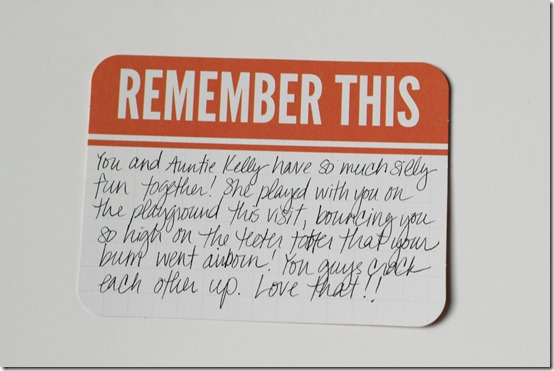 REMEMBER THIS
You and Auntie Kelly have so much silly
fun together! She played with you on
the playground this visit, bouncing you
so high on the teeter totter that your
bum went airborn! You guys crack
each other up. Love that!!